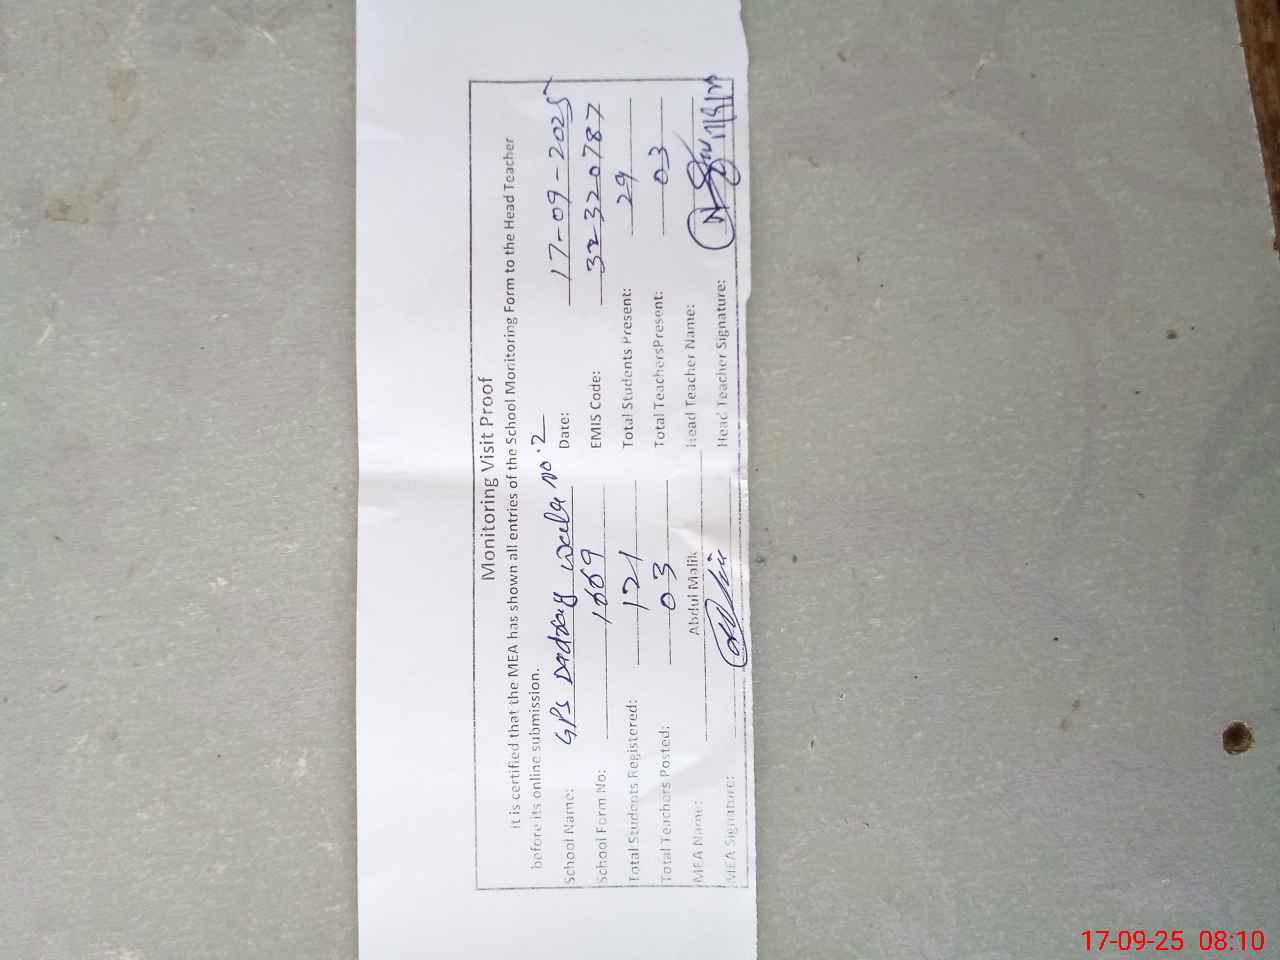 Monitoring Visit Proof
It is certified that the MEA has shown all entries of the School Monitoring Form to the Head Teacher
before its online submission.
School Name: GPS Wala No. 2 Date: 17-09-2025
School Form No: 1669 EMIS Code: 32320787
Total Students Registered: 121 Total Students Present: 29
Total Teachers Posted: 03 Total TeachersPresent: 03
MEA Name: Abdul Malik Head Teacher Name:
MEA Signature: Head Teacher Signature:
17-09-25 08:10